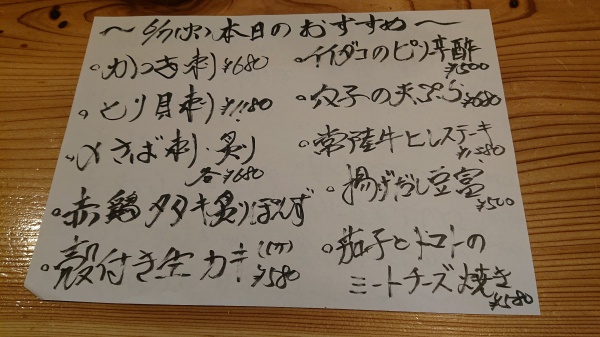 〜6/7(火)本日のおすすめ〜
。かつお刺 ¥680
。とり貝刺 ¥1180
。〆さば刺・炙り
各¥680
。赤鶏タタキ炙りぽんず
。殻付き生カキ(1ヶ)
¥580
。イイダコのピリ辛酢
¥500
。穴子の天ぷら ¥680
。常陸牛ヒレステーキ
¥1280
。揚げだし豆富
¥500
。茄子とトマトの
ミートチーズ焼き
¥580